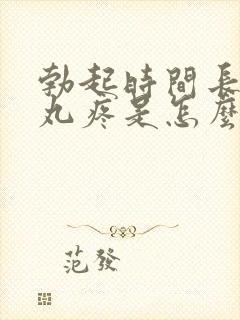 勃起時間長
丸疼是怎麼
范發